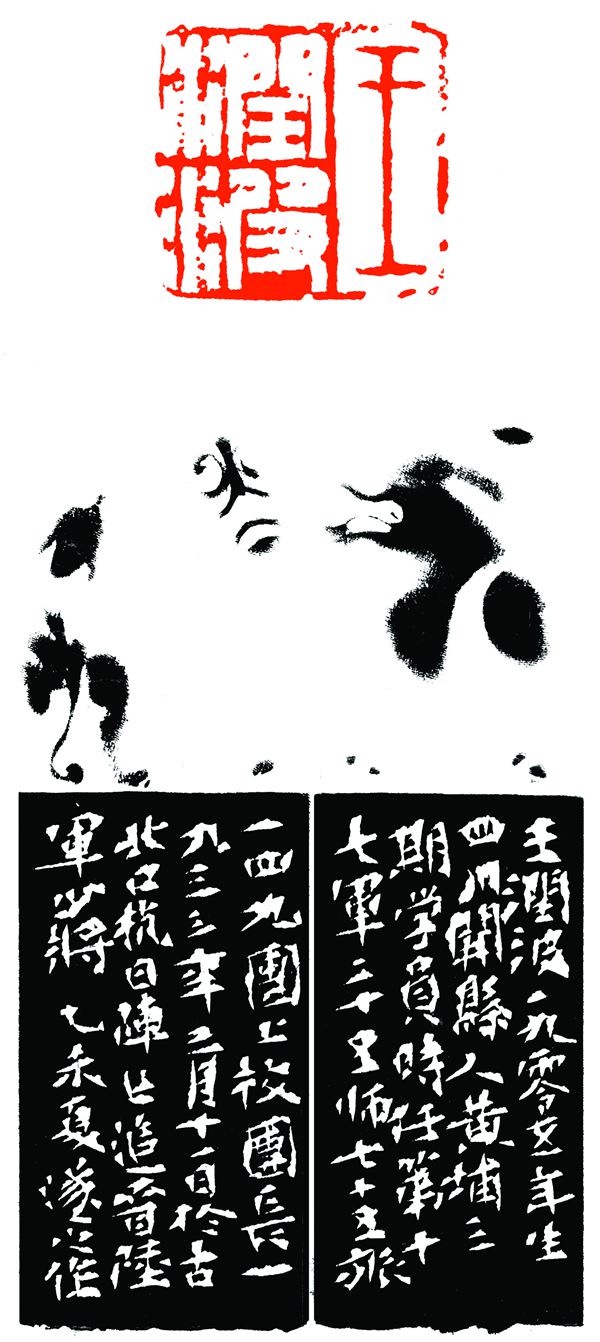 王
潤波
王潤波一九零五年生
四川開縣人黄埔三
期学員時任第十
七軍二十五师七十五旅
一四九團上校團長一
九三三年三月十一日於古
北口抗日陣亡追晋陸
軍少將 乙未夏遂作